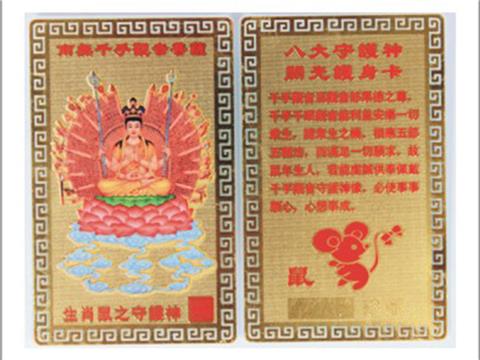 南無千手觀音菩薩
生肖鼠之守護神
八大守護神
開光護身卡
千手觀音爲觀音部果德之尊，
千手千眼觀音能利益安樂一切
衆生，隨衆生之機，相應五部
五種法，而滿足一切願求，故
鼠年生人，若能虔誠供奉佩戴
千手觀音守護神像，必使事事
順心，心想事成。
鼠